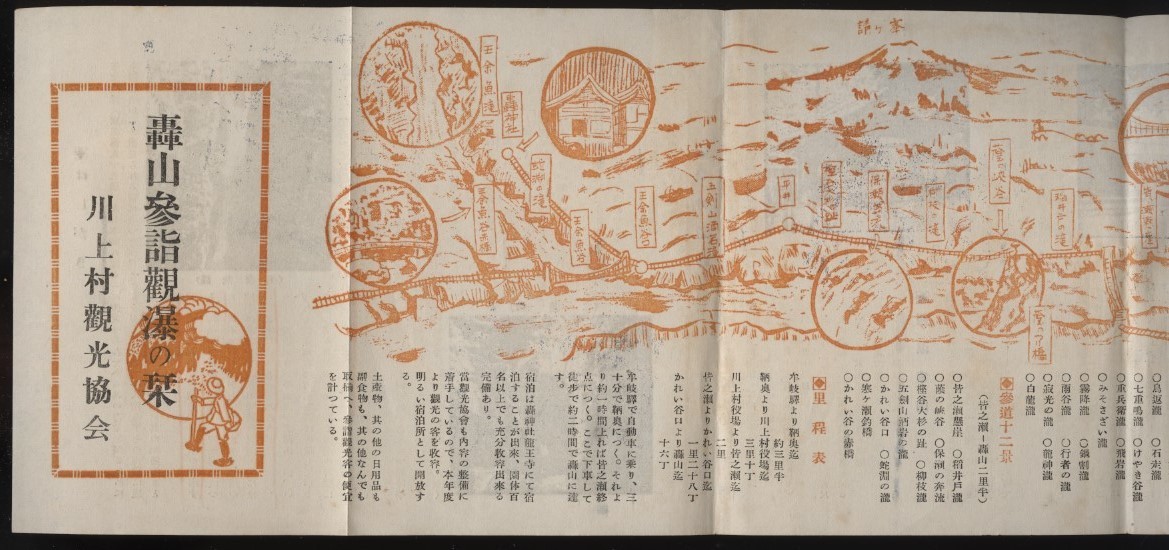 ○七重鳴瀧　○けやき谷瀧
○重兵衛瀧　○飛岩瀧
○みそさざい瀧
○霧降瀧　○鍋割瀧
○雨谷瀧　○行者の瀧
○寂光の瀧　○龍神瀧
○白龍瀧
◆參道十二景
(皆之瀬ー轟山二里半)
○皆之瀬懸崖　○稻井戸瀧
○蔭の峡谷　○保瀬の奔流
○樫谷大杉の趾　○柳枝瀧
○五劍山洒岩の瀧
○かれい谷口　○蛇淵の瀧
○寒ヶ瀬釣橋
○かれい谷の赤橋
◆里程表
牟岐驛より鞆奥迄
約三里半
鞆奥より川上村役場迄
三里十丁
川上村役場より皆之瀬迄
二里
皆之瀬よりかれい谷口迄
一里二十八丁
かれい谷口より轟山迄
十六丁
牟岐驛で自動車に乗り、三
十分で鞆奥につく。それよ
り約一時間上れば皆之瀬終
点につく。ここで下車して
徒歩で約二時間で轟山に達
す。
宿泊は轟神社龍王寺にて宿
泊することが出来、團体百
名以上でも充分收容出來る
完備あり。
當觀光協會も内容の整備に
着手しているので、本年度
より觀光の客を收容。
明るい宿泊所として開放す
る。
土産物、其の他の日用品も
副食物も、其の他なんでも
取揃へ、參詣觀光客の便宜
を計つている。
峯ヶ諦
王余魚瀧
轟神社
王余魚谷
王余魚谷口
轟山參詣觀瀑の栞
川上村觀光協会